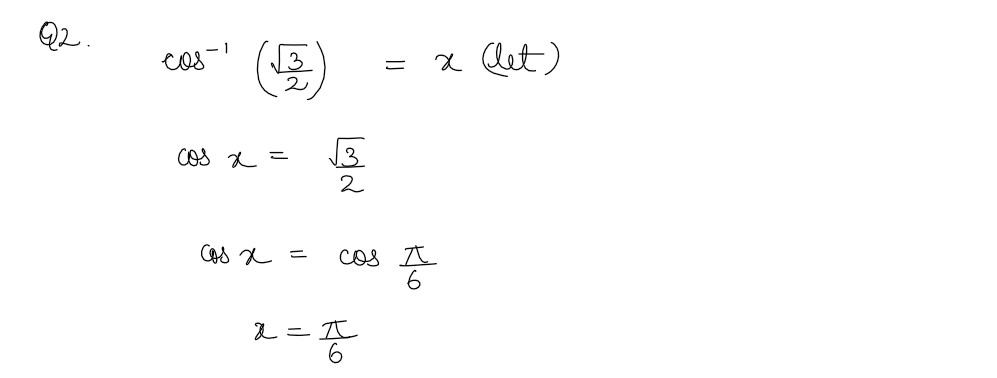 Q2.
cos⁻¹ (√3/2) = x (let)
cos x = √3/2
cos x = cos π/6
x = π/6